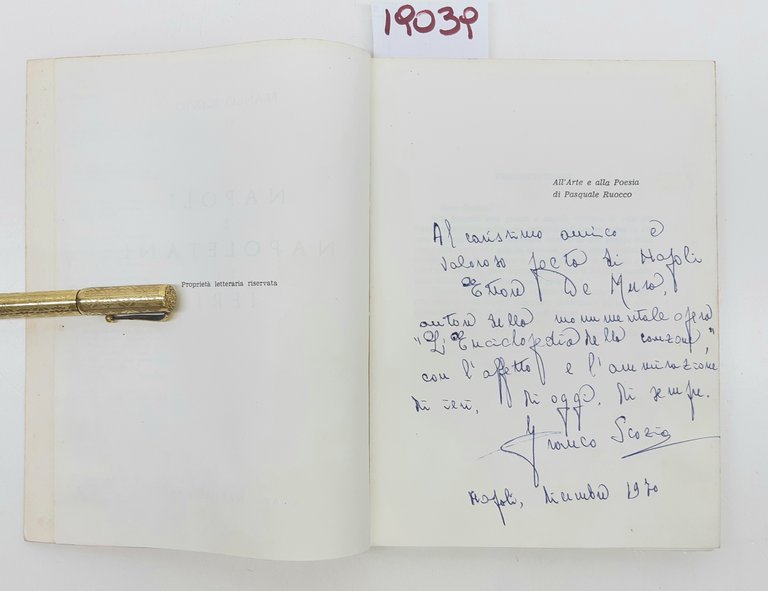 19039
Proprietà letteraria riservata
All'Arte e alla Poesia
di Pasquale Ruocco
Al carissimo amico e
valoroso poeta di Napoli
Ettore De Mura,
autore della monumentale opera
"L'Enciclopedia della canzone,"
con l'affetto e l'ammirazione
di ieri, di oggi, di sempre.
Franco Scozia
Napoli, dicembre 1970